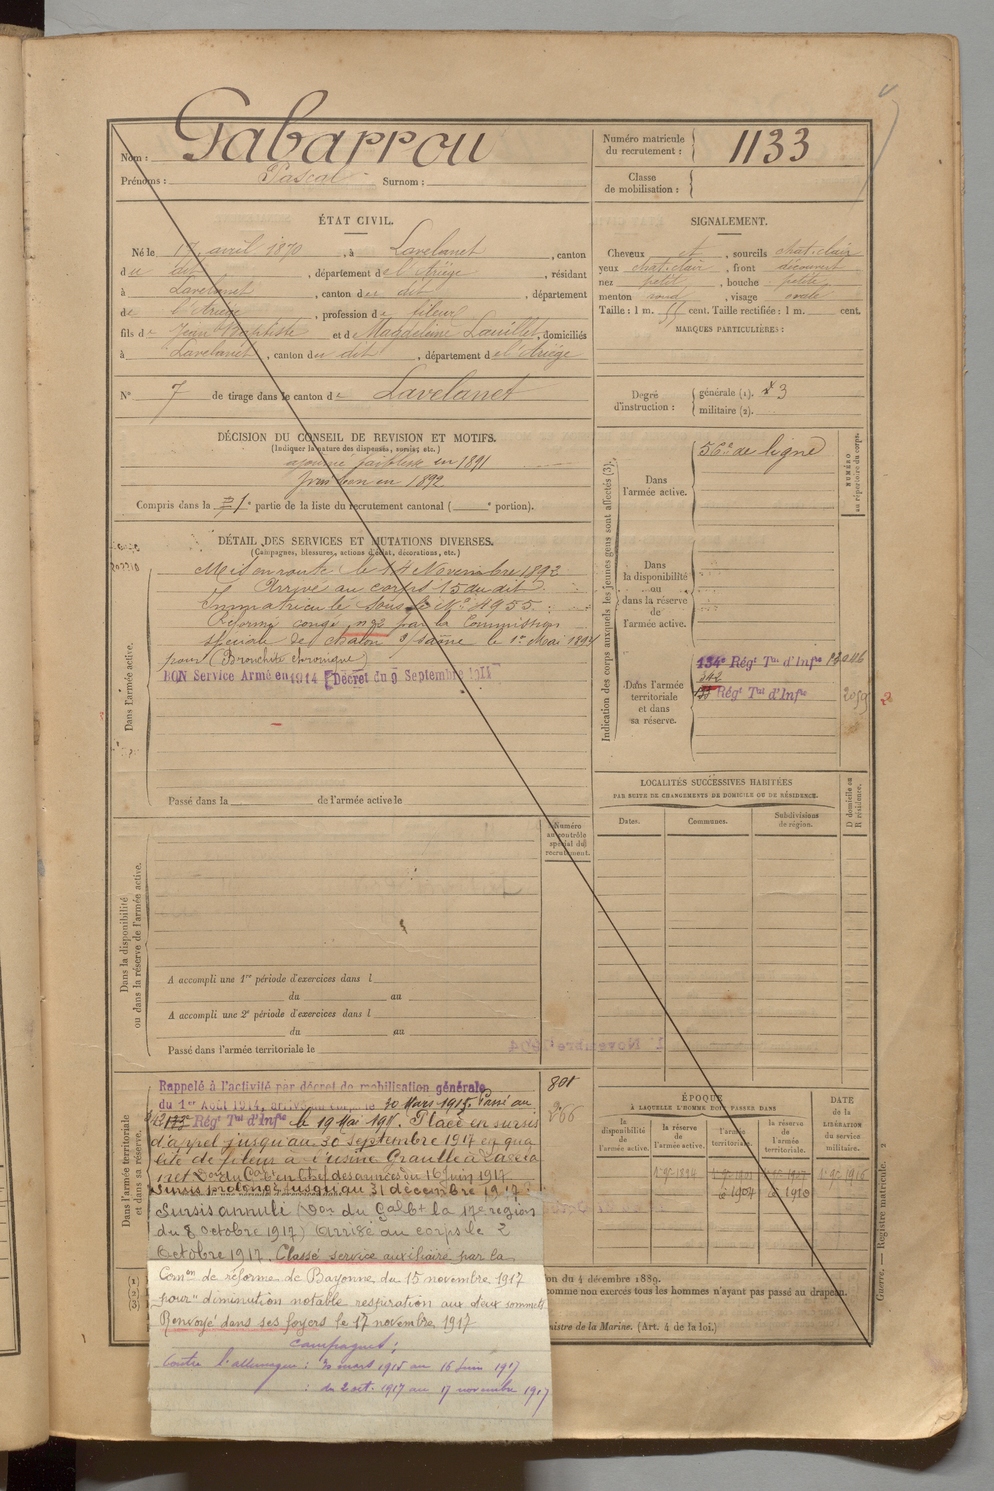 Nom : Gabarrou
Prénoms : Pascal Surnom :
Numéro matricule du recrutement : 1133
Classe de mobilisation :
ÉTAT CIVIL.
Né le 17 avril 1870, à Lavelanet, canton
du dit, département de l'Ariège, résidant
à Lavelanet, canton du dit, département
de l'Ariège, profession de fileur
fils de Jean Baptiste et de Magdeleine, domiciliés
à Lavelanet, canton du dit, département de l'Ariège
N° 7 de tirage dans le canton de Lavelanet
SIGNALEMENT.
Cheveux et, sourcils chat. clair
yeux chat. clair, front découvert
nez petit, bouche petite
menton rond, visage ovale
Taille : 1 m. 55 cent. Taille rectifiée : 1 m. cent.
MARQUES PARTICULIÈRES :
Degré d'instruction : générale (1). 3
militaire (2).
DÉCISION DU CONSEIL DE REVISION ET MOTIFS.
(Indiquer la nature des dispenses, sursis, etc.)
ajourné faiblesse en 1891
bon en 1892
Compris dans la 1e partie de la liste du recrutement cantonal ( e portion).
DÉTAIL DES SERVICES ET MUTATIONS DIVERSES.
(Campagnes, blessures, actions d'éclat, décorations, etc.)
Dans l'armée active.
Mis en route le 14 Novembre 1892
Arrivé au corps 15 du dit
Immatriculé sous le N° 4955
Réformé congé n°2 par la Commission
spéciale de Chalon s/ Saône le 1er Mai 1894
pour (Bronchite chronique)
BON Service Armé en 1914 [Décret du 9 Septembre 1914
Passé dans la de l'armée active le
Indication des corps auxquels les jeunes gens sont affectés (3).
NUMÉRO au répertoire du corps.
Dans l'armée active. 56e de ligne
Dans la disponibilité ou dans la réserve de l'armée active.
Dans l'armée territoriale et dans sa réserve.
134e Régt Tal d'Infie
342
Régt Tal d'Infie
LOCALITÉS SUCCESSIVES HABITÉES
PAR SUITE DE CHANGEMENTS DE DOMICILE OU DE RÉSIDENCE.
Dates. Communes. Subdivisions de région. D domicile ou R résidence.
Dans la disponibilité ou dans la réserve de l'armée active.
Numéro au contrôle spécial du recrutement.
A accompli une 1re période d'exercices dans l
du au
A accompli une 2e période d'exercices dans l
du au
Passé dans l'armée territoriale le
Dans l'armée territoriale et dans sa réserve.
801
266
Rappelé à l'activité par décret de mobilisation générale
du 1er Août 1914, arrivé au corps le 30 Mars 1915. Passé au
342 Régt Tal d'Infie le 19 Mai 191. Placé en sursis
d'appel jusqu'au 30 Septembre 1917 en qua
lité de fileur à l'usine
du 16 Juin 1917
Sursis prolongé jusqu'au 31 décembre 1917.
Sursis annulé (Don du Gal Ct la 17e région
du 8 octobre 1917) arrivé au corps le 2
Octobre 1917. Classé service auxiliaire par la
Comon de réforme de Bayonne du 15 novembre 1917
pour "diminution notable respiration aux deux sommets
Renvoyé dans ses foyers le 17 novembre 1917
Campagnes :
Contre l'allemagne : 30 mars 1915 au 16 juin 1917
: du 2 oct. 1917 au 17 novembre 1917
ÉPOQUE
À LAQUELLE L'HOMME DOIT PASSER DANS
la disponibilité de l'armée active. la réserve de l'armée active. l'armée territoriale. la réserve de l'armée territoriale. DATE de la LIBÉRATION du service militaire.
on du 4 décembre 1889.
comme non exercés tous les hommes n'ayant pas passé au drapeau.
nistre de la Marine. (Art. 4 de la loi.)
Guerre. — Registre matricule. 2